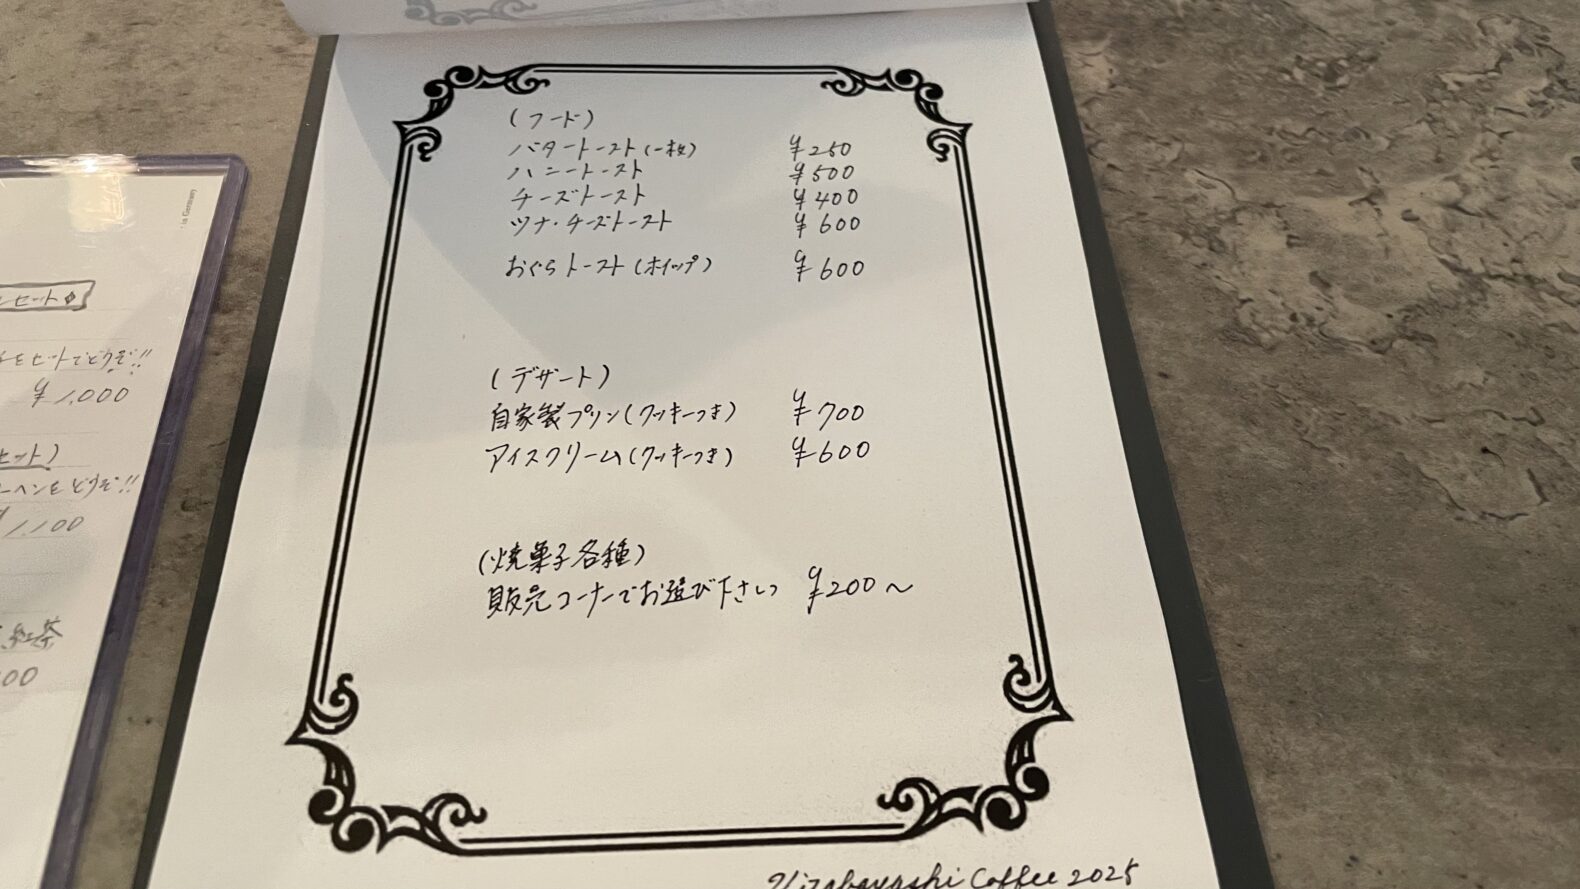 (フード)
バタートースト(一枚) ¥250
ハニートースト ¥500
チーズトースト ¥400
ツナ・チーズトースト ¥600
おぐらトースト(ホイップ) ¥600
(デザート)
自家製プリン(クッキーつき) ¥700
アイスクリーム(クッキーつき) ¥600
(焼菓子各種)
販売コーナーでお選び下さい ¥200～
Coffee 2025
in Germany
セット
をセットでどうぞ!!
¥1,000
セット)
ーヘンをどうぞ!!
¥1,100
紅茶
00